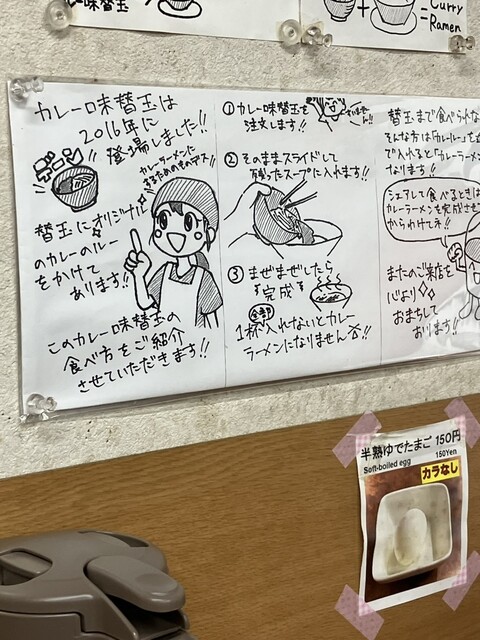 味替玉
=Curry
Ramen
カレー味替玉は
2016年に
登場しました!!
カレーラーメンに
するためのものデス!!
替玉にオリジナル
のカレーのルー
をかけて
あります!!
このカレー味替玉の
食べ方をご紹介
させていただきます!!
① カレー味替玉を
注文します!!
② そのままスライドして
残ったスープに入れます!!
③ まぜまぜしたら
完成
全部
1杯入れないとカレー
ラーメンになりません!!
替玉まで食べられな
そんな方は「カレールー」を
で入れると「カレーラーメン
なります!!
シェアして食べるときは
カレーラーメンを完成させ
からわけてネ!!
またのご来店を
心より
おまちして
おります!!
半熟ゆでたまご 150円
Soft-boiled egg 150Yen
カラなし